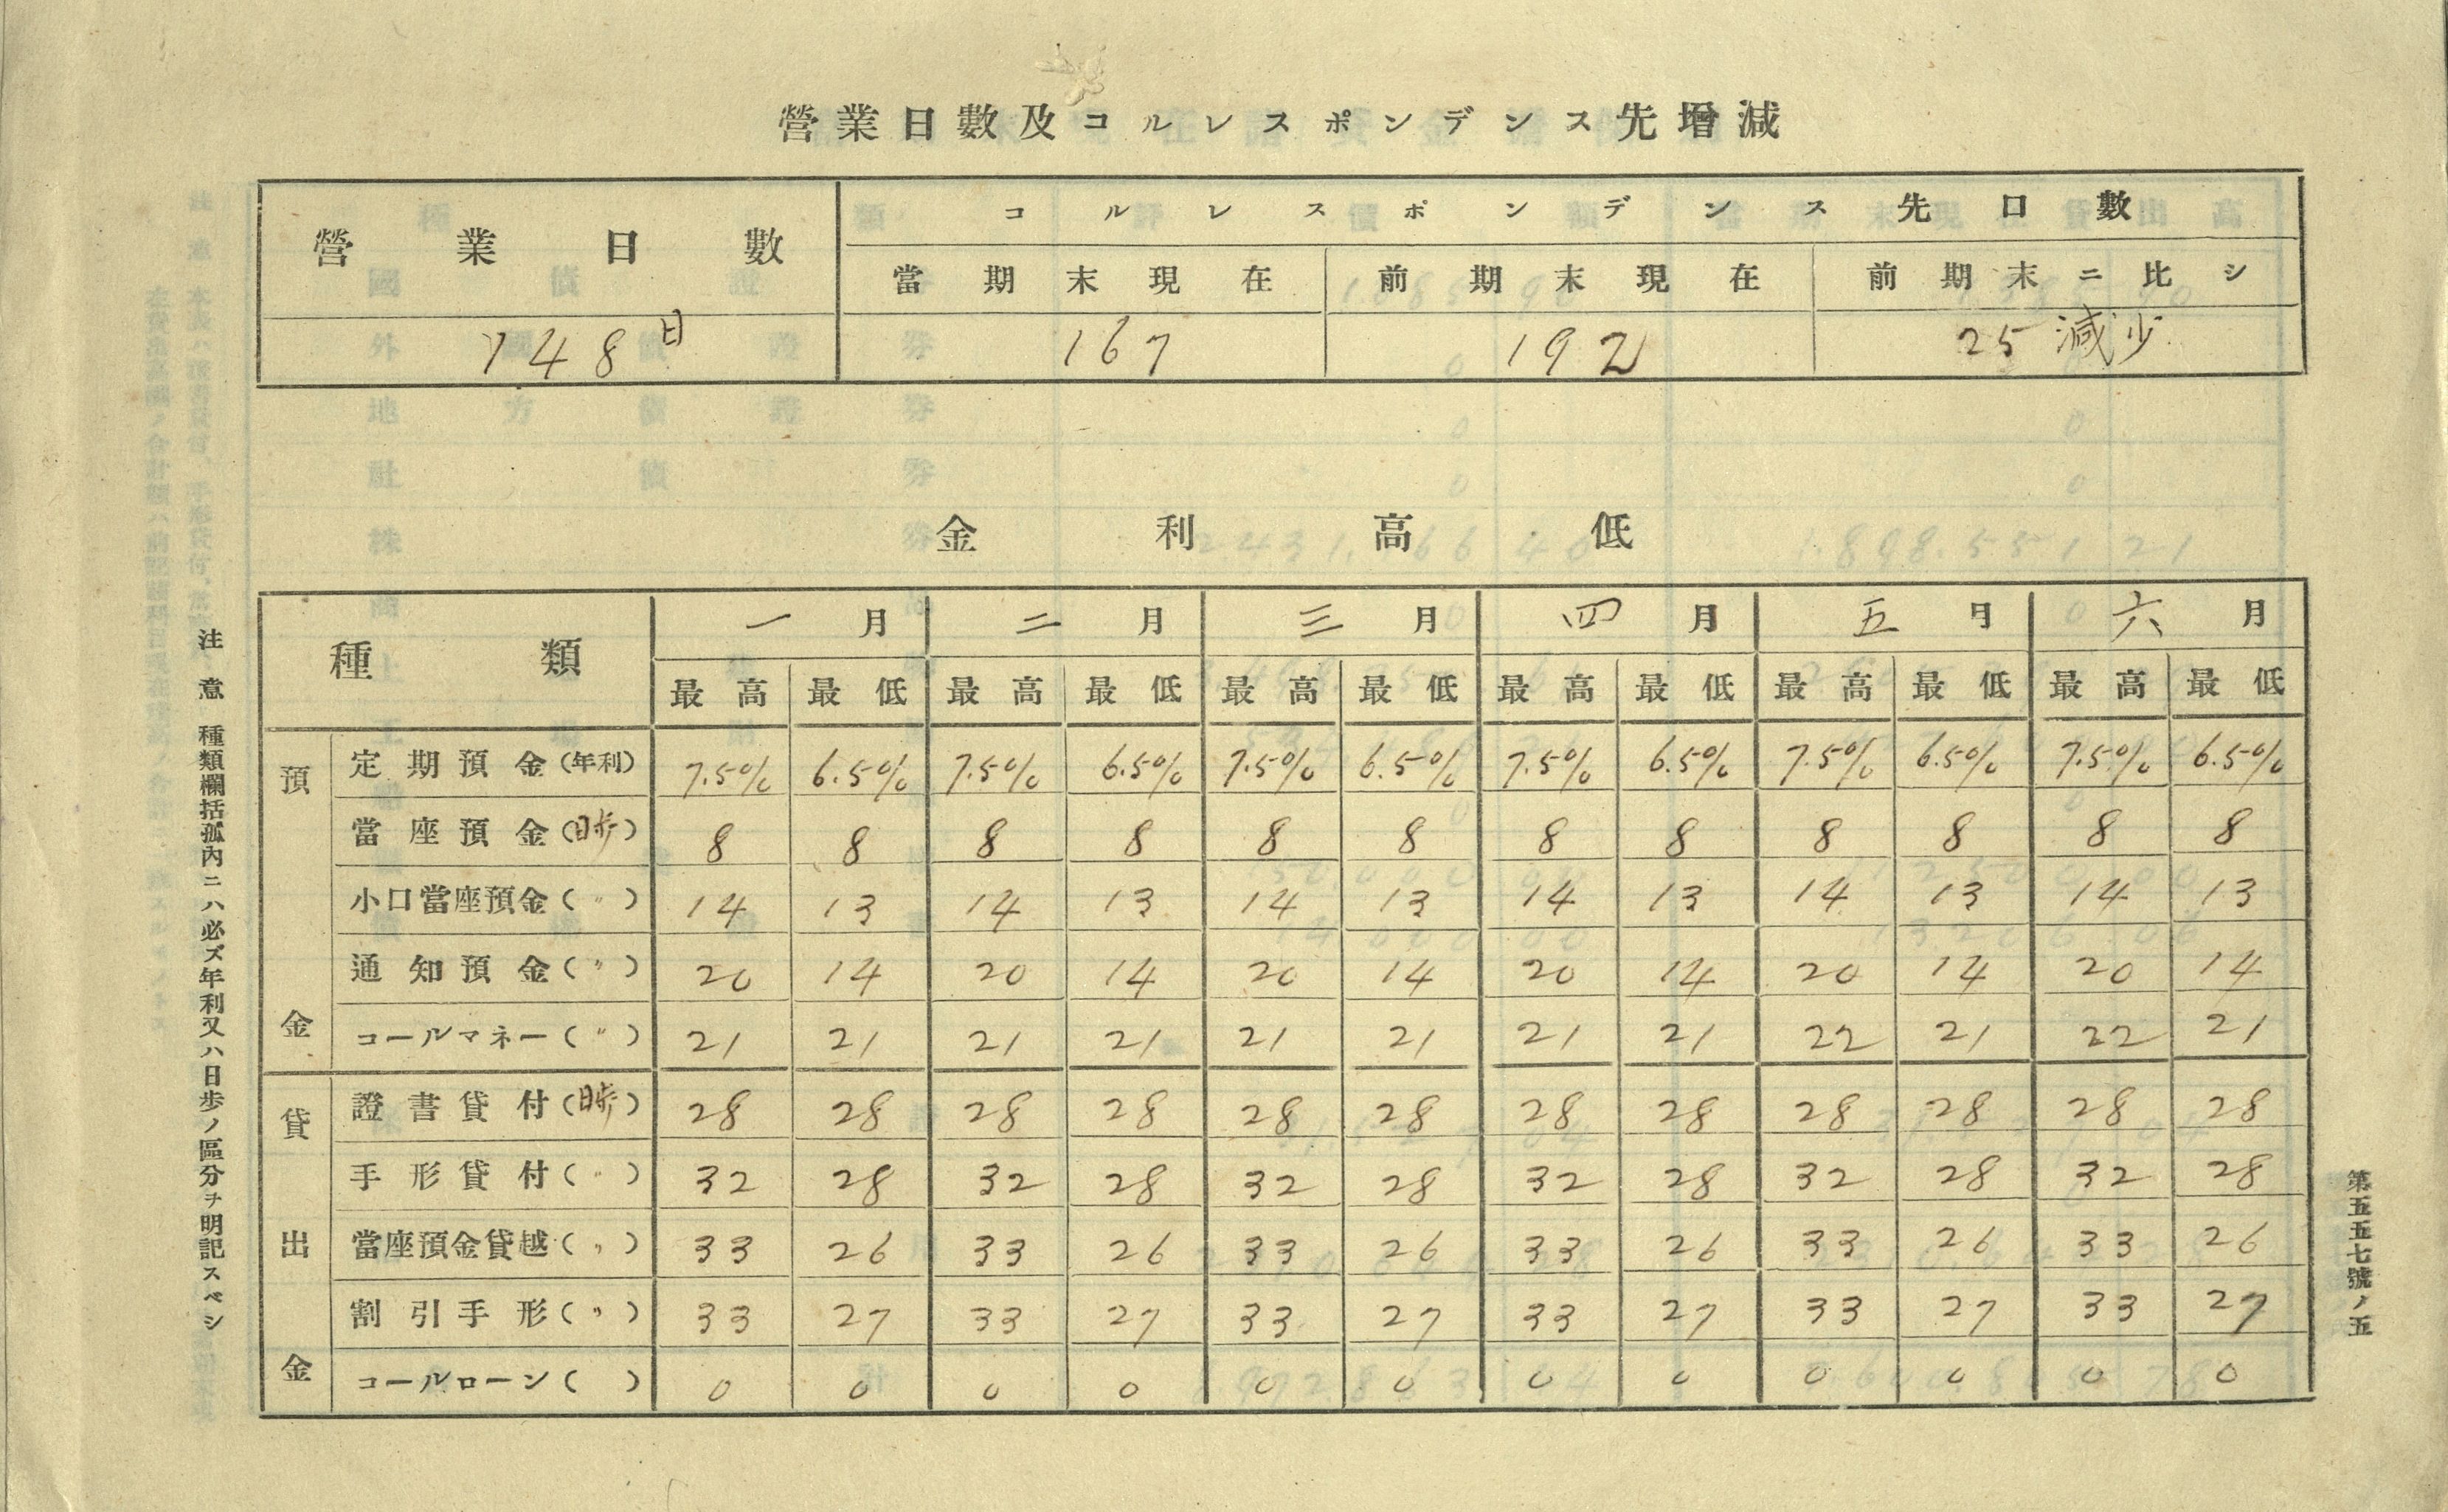 營業日數及コルレスポンデンス先增減
營業日數 コルレスポンデンス先口數
當期末現在 前期末現在 前期末ニ比シ
148日 167 192 25減少
金利高低
種類 一月 二月 三月 四月 五月 六月
最高 最低 最高 最低 最高 最低 最高 最低 最高 最低 最高 最低
預金
定期預金(年利) 7.5% 6.5% 7.5% 6.5% 7.5% 6.5% 7.5% 6.5% 7.5% 6.5% 7.5% 6.5%
當座預金(日歩) 8 8 8 8 8 8 8 8 8 8 8 8
小口當座預金(〃) 14 13 14 13 14 13 14 13 14 13 14 13
通知預金(〃) 20 14 20 14 20 14 20 14 20 14 20 14
コールマネー(〃) 21 21 21 21 21 21 21 21 22 21 22 21
貸出金
證書貸付(日歩) 28 28 28 28 28 28 28 28 28 28 28 28
手形貸付(〃) 32 28 32 28 32 28 32 28 32 28 32 28
當座預金貸越(〃) 33 26 33 26 33 26 33 26 33 26 33 26
割引手形(〃) 33 27 33 27 33 27 33 27 33 27 33 27
コールローン( ) 0 0 0 0 0 0 0 0 0 0 0 0
注意 種類欄括孤內ニハ必ズ年利又ハ日步ノ區分ヲ明記スベシ
第五五七號ノ五